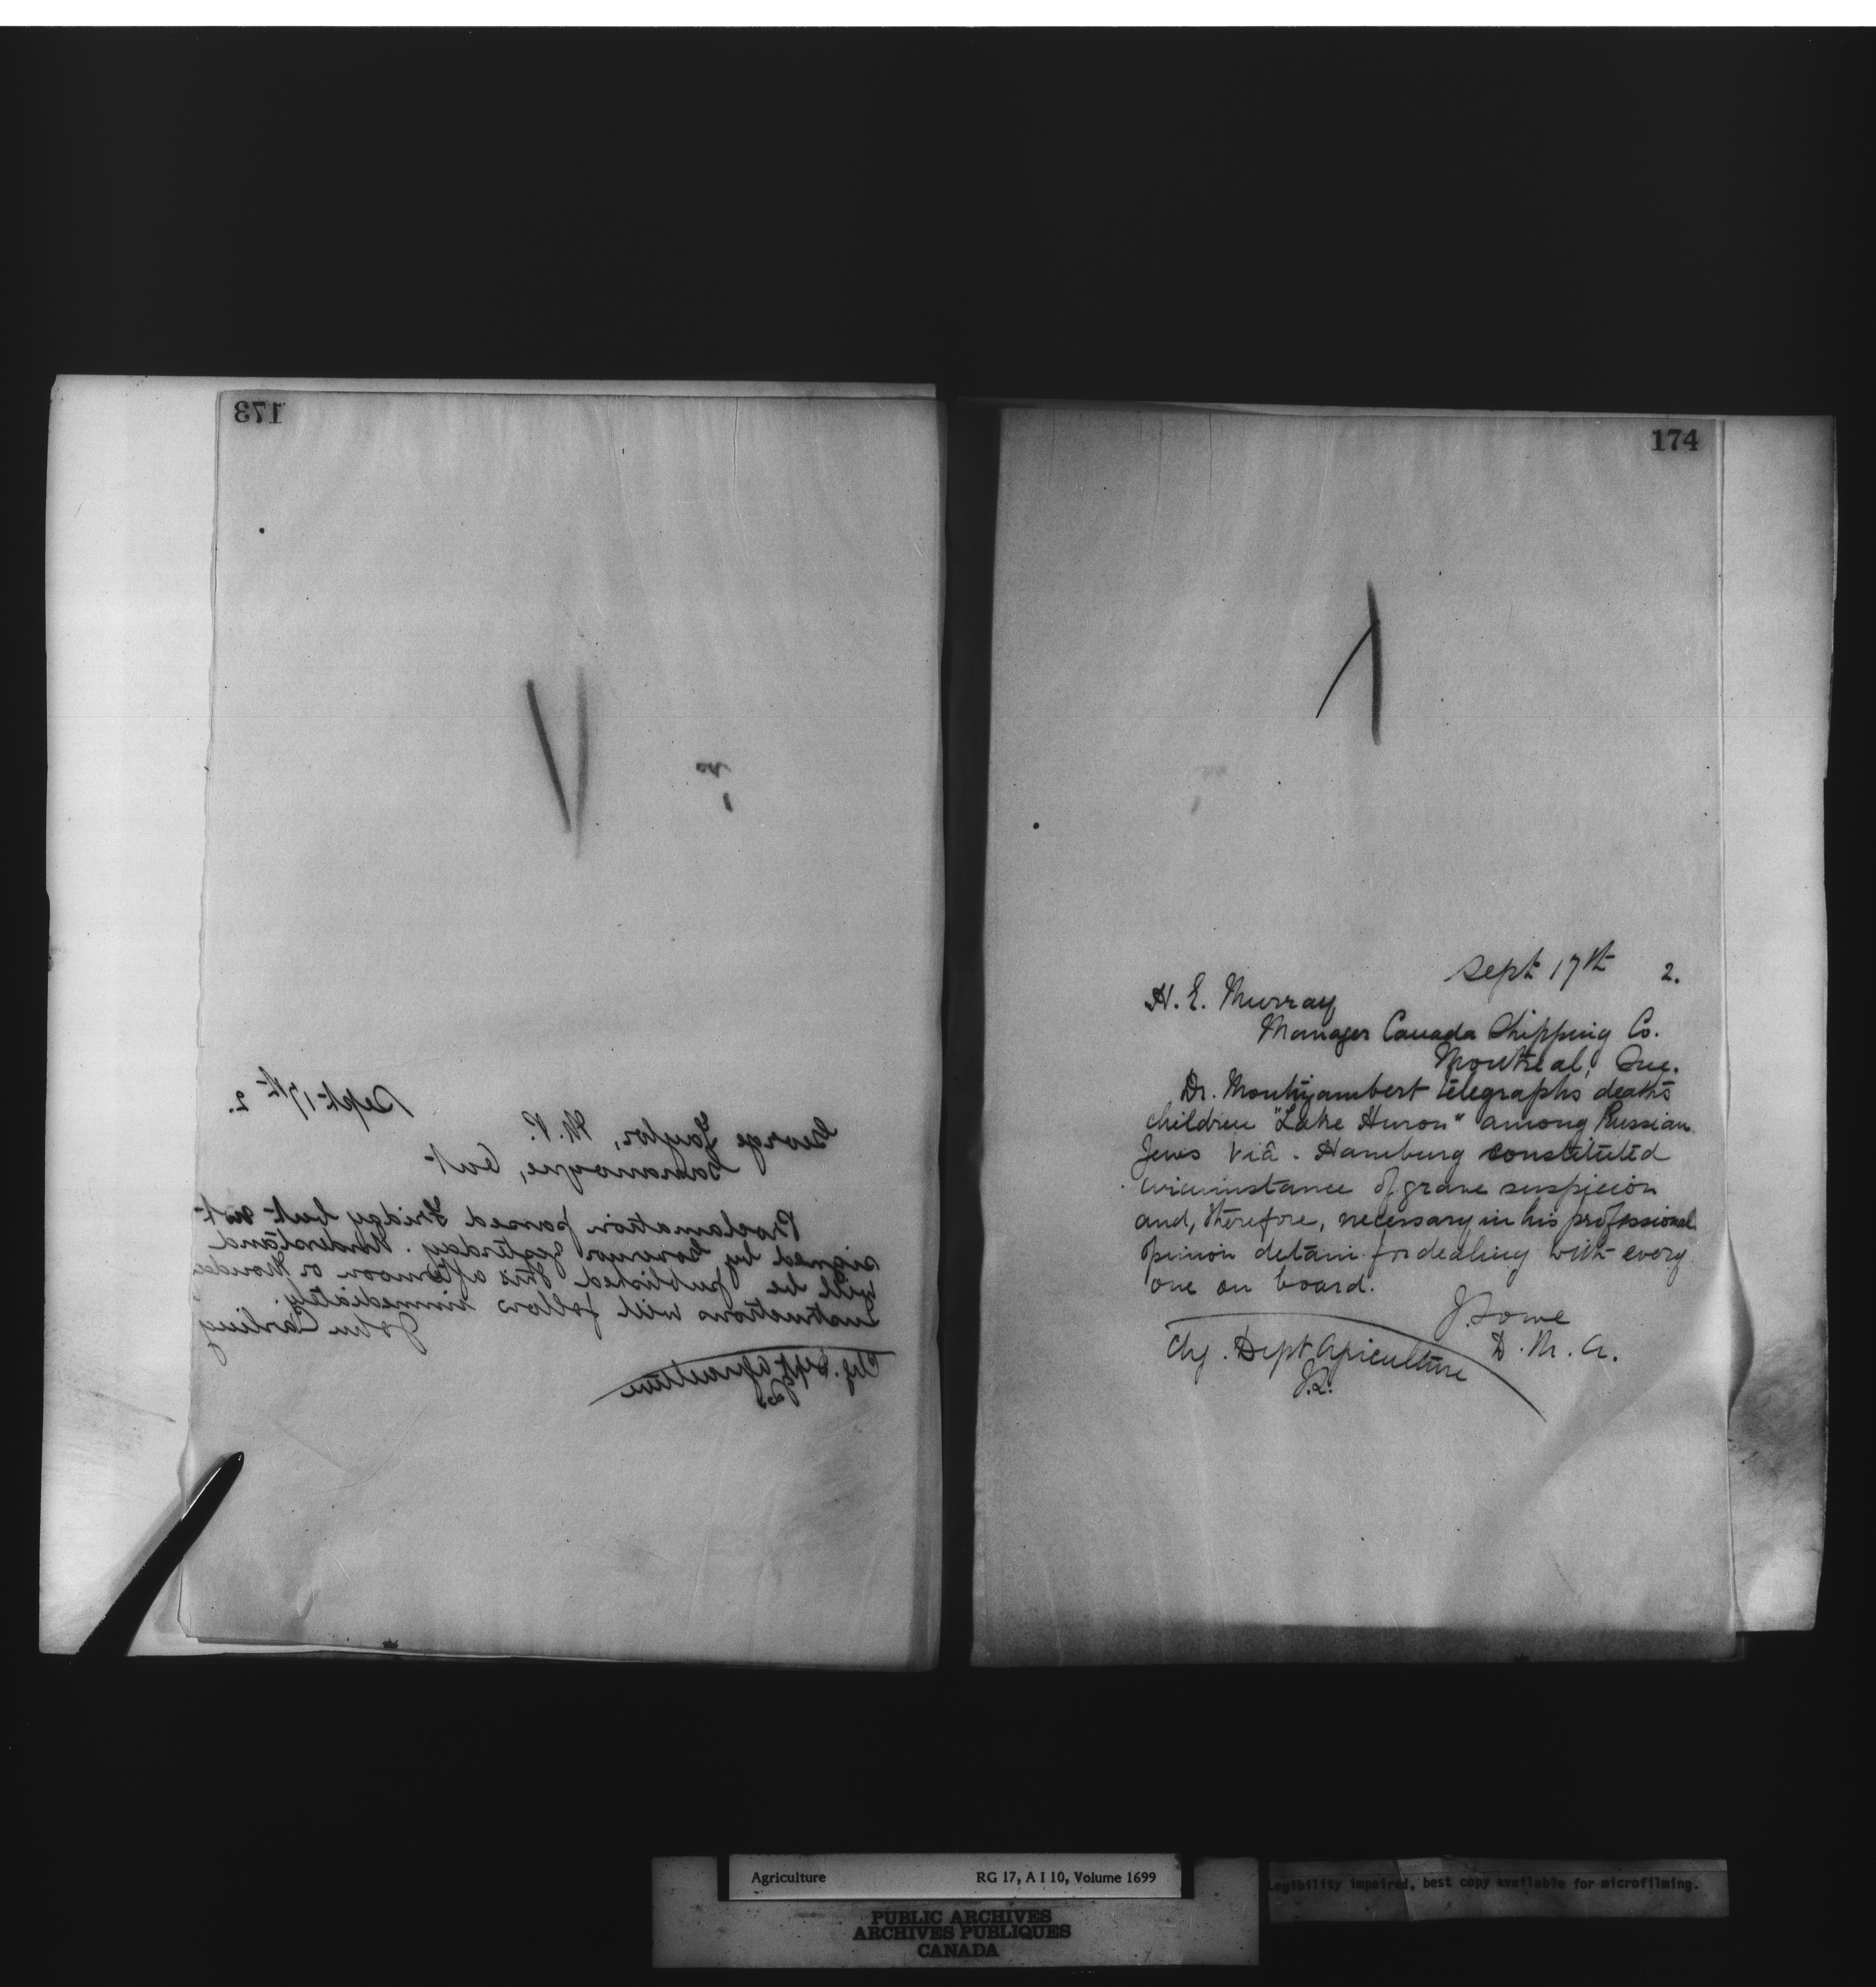 173
Sept 17th 2.
George Taylor, M.P.
Gananoque, Ont
Proclamation passed Friday but not
signed by Governor yesterday. Understand
will be published this afternoon or Monda
Instructions will follow immediately.
John Carling
Chg. Dept Agriculture
174
Sept 17th 2.
H. E. Murray
Manager Canada Shipping Co.
Montreal, Que.
Dr. Montizambert telegraphs deaths
children "Lake Huron" among Russian
Jews viâ. Hamburg constituted
circumstance of grave suspicion
and, therefore, necessary in his professional
opinion detain for dealing with every
one on board.
J. Lowe
D. M. A.
Chg. Dept Agriculture
J.L.
Agriculture RG 17, A I 10, Volume 1699
Legibility impaired, best copy available for microfilming.
PUBLIC ARCHIVES
ARCHIVES PUBLIQUES
CANADA